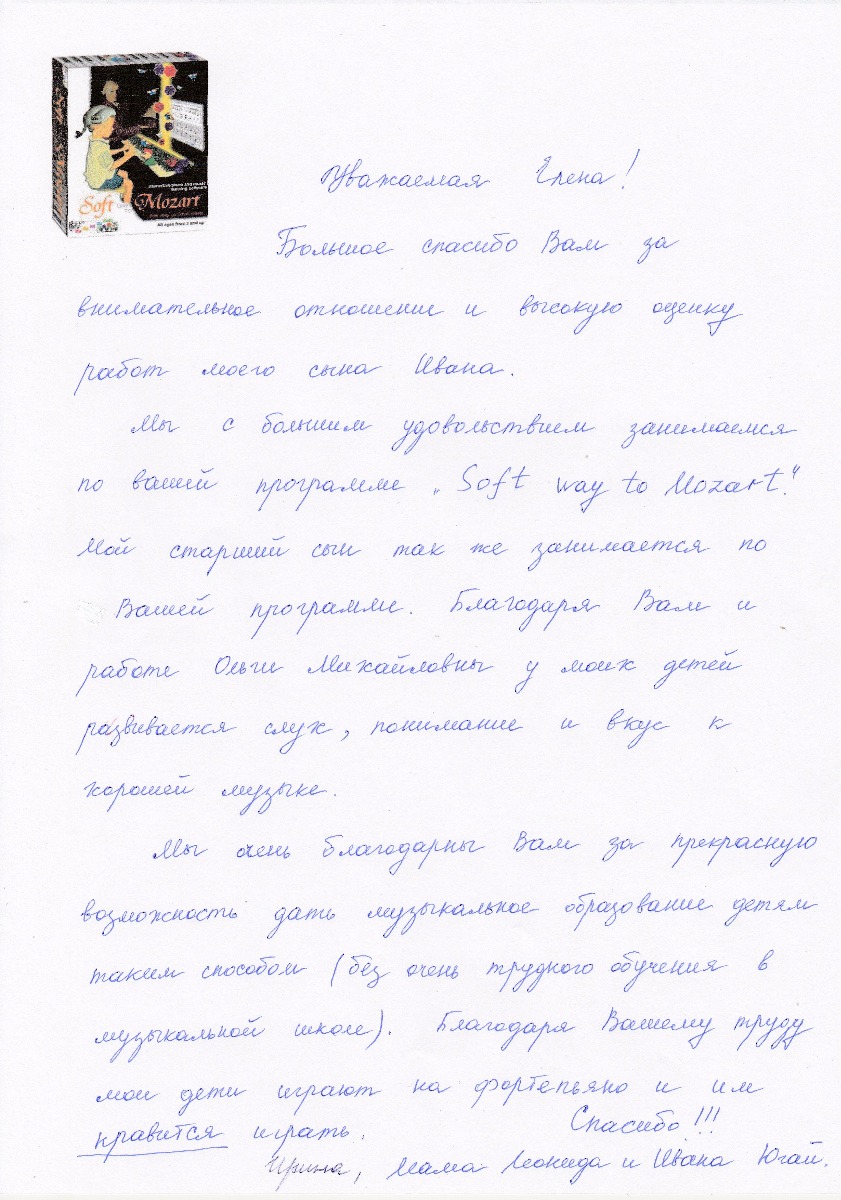 Soft Mozart
Уважаемая Елена!
Большое спасибо Вам за
внимательное отношение и высокую оценку
работ моего сына Ивана.
Мы с большим удовольствием занимаемся
по вашей программе „Soft way to Mozart."
Мой старший сын так же занимается по
Вашей программе. Благодаря Вам и
работе Ольги Михайловны у моих детей
развивается слух, понимание и вкус к
хорошей музыке.
Мы очень благодарны Вам за прекрасную
возможность дать музыкальное образование детям
таким способом (без очень трудного обучения в
музыкальной школе). Благодаря Вашему труду
мои дети играют на фортепьяно и им
нравится играть. Спасибо!!!
Ирина, мама Леонида и Ивана Югай.